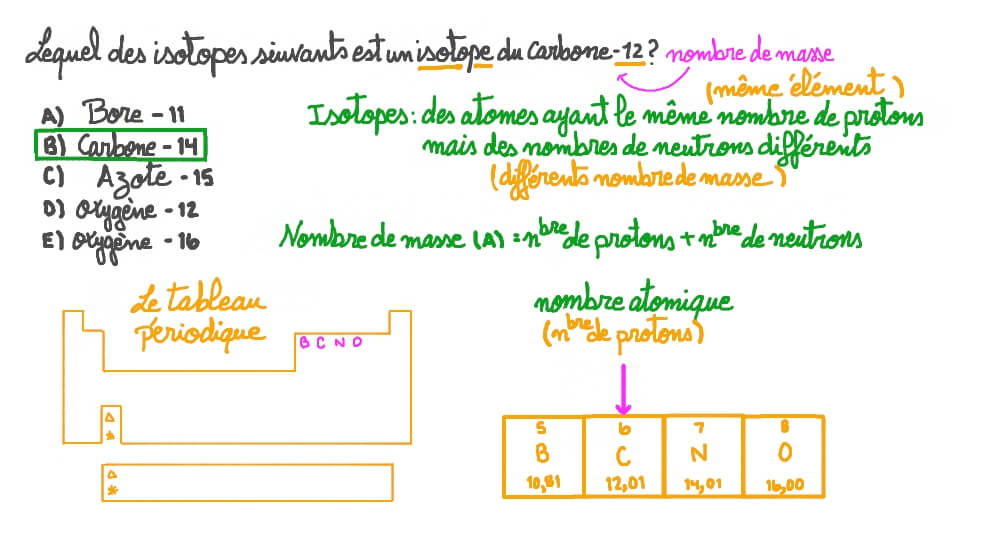 Lequel des isotopes siuvants est un isotope du Carbone-12? nombre de masse
(même élément)
A) Bore - 11
Isotopes: des atomes ayant le même nombre de protons
B) Carbone - 14
mais des nombres de neutrons différents
C) Azote - 15
(différents nombre de masse)
D) Oxygène - 12
E) Oxygène - 16
Nombre de masse (A) = nbre de protons + nbre de neutrons
Le tableau
périodique
B C N O
Δ
*
Δ
*
nombre atomique
(nbre de protons)
5 6 7 8
B C N O
10,81 12,01 14,01 16,00